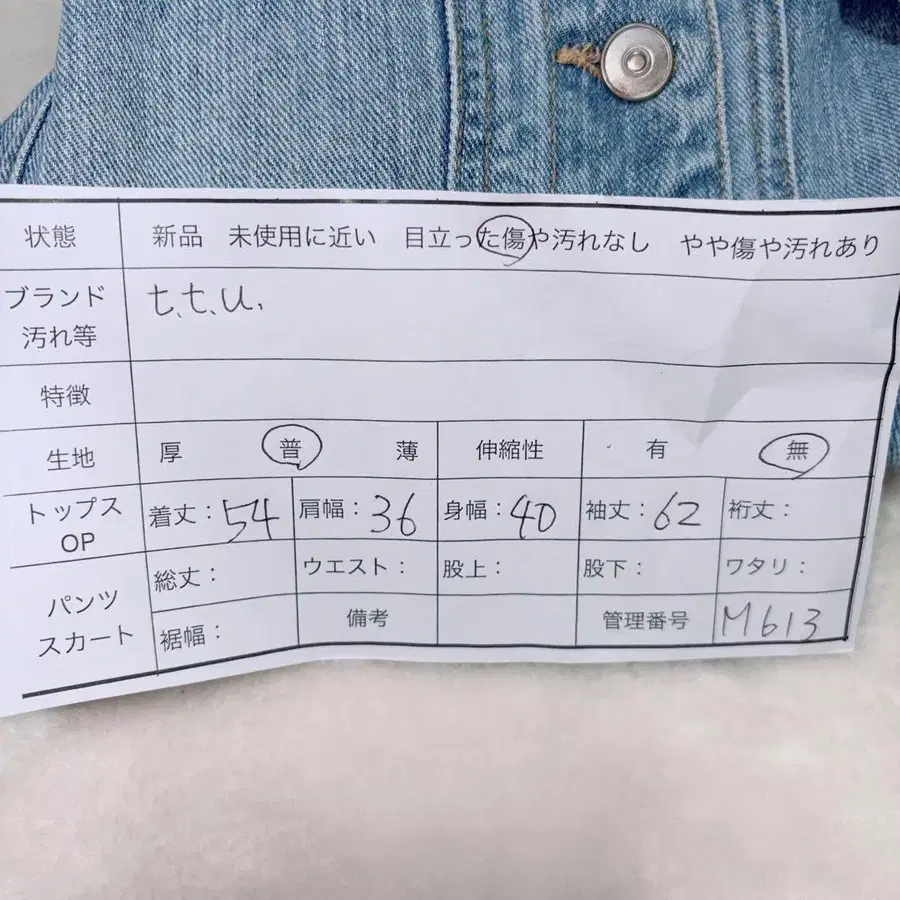 状態 新品 未使用に近い 目立った傷や汚れなし やや傷や汚れあり
ブランド t.t.u.
汚れ等
特徴
生地 厚 普 薄 伸縮性 有 無
トップス OP 着丈：54 肩幅：36 身幅：40 袖丈：62 裄丈：
パンツ スカート 総丈： ウエスト： 股上： 股下： ワタリ：
裾幅： 備考 管理番号 M613